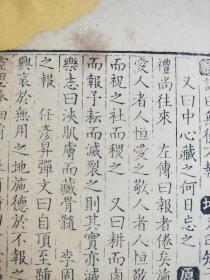 又曰中心藏之何日忘之
禮尚往來 左傳曰報者倦矣
愛人者人恒愛之敬人者人恒
而視之社而稷之 又曰耕而鹵
而報予耘而滅裂之則其實亦滅
樂志曰浹肌膚而藏骨髓 李固
之報 任彥昇彈文曰自頂至踵
興哀於無用之地施德於不報之